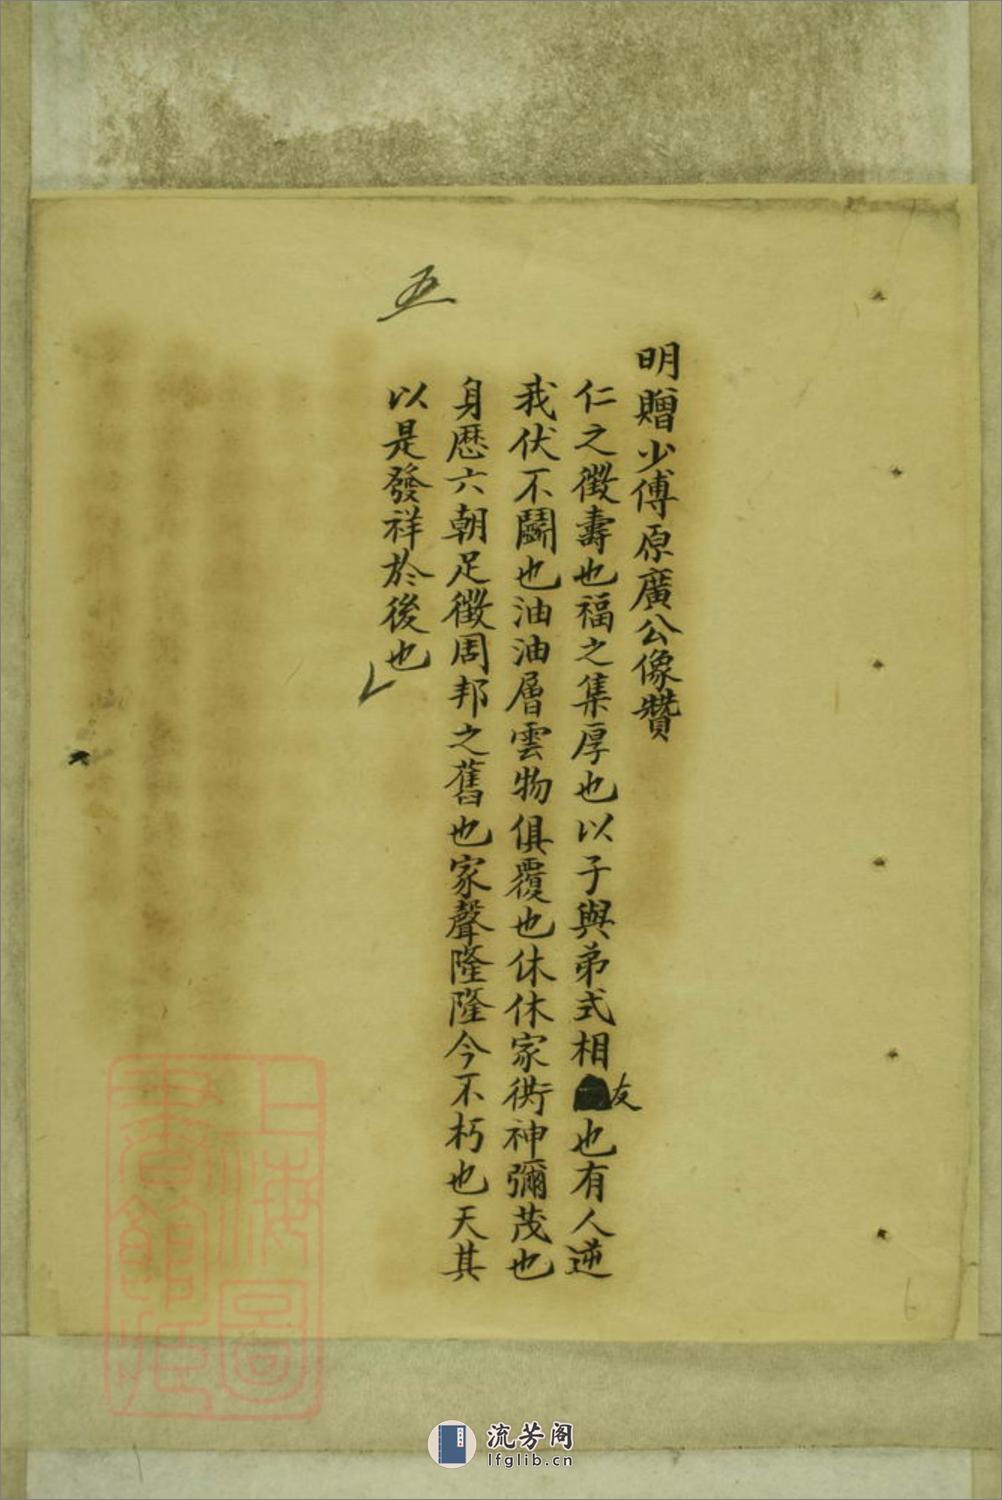 五
明贈少傅原廣公像贊
仁之徵壽也福之集厚也以子與弟式相友也有人逆
我伏不鬭也油油層雲物俱覆也休休家衖神彌茂也
身歷六朝足徵周邦之舊也家聲隆隆今不朽也天其
以是發祥於後也
上海圖
書館藏
6
流芳阁
lfglib.cn